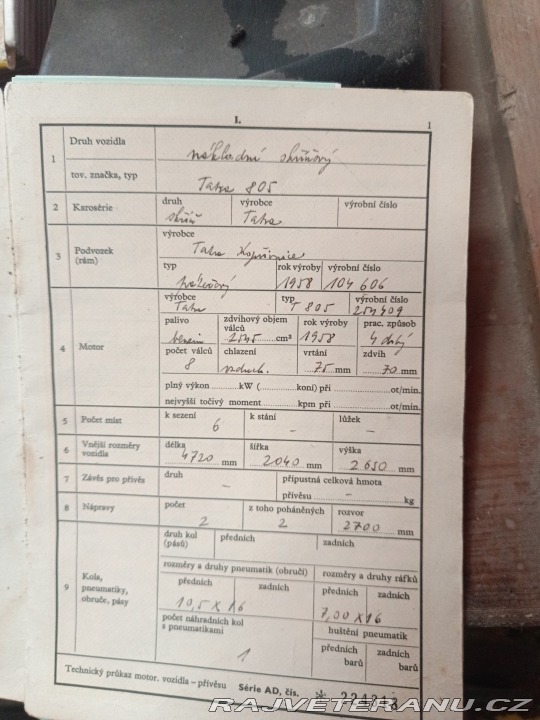 I.
1
1 Druh vozidla nákladní skříňový
tov. značka, typ Tatra 805
2 Karosérie druh skříň výrobce Tatra výrobní číslo
3 Podvozek (rám) výrobce Tatra Kopřivnice
typ rok výroby 1958 výrobní číslo 104 606
4 Motor výrobce Tatra typ T 805 výrobní číslo 254409
palivo benzin zdvihový objem válců 2545 cm³ rok výroby 1958 prac. způsob 4 dobý
počet válců 8 chlazení vzduch. vrtání 75 mm zdvih 70 mm
plný výkon kW ( koní) při ot/min.
nejvyšší točivý moment kpm při ot/min.
5 Počet míst k sezení 6 k stání – lůžek –
6 Vnější rozměry vozidla délka 4720 mm šířka 2040 mm výška 2650 mm
7 Závěs pro přívěs druh – přípustná celková hmota
přívěsu – kg
8 Nápravy počet 2 z toho poháněných 2 rozvor 2700 mm
9 Kola, pneumatiky, obruče, pásy druh kol (pásů) předních zadních
rozměry a druhy pneumatik (obručí) rozměry a druhy ráfků
předních zadních předních zadních
10,5 X 16 7,00 X 16
počet náhradních kol s pneumatikami 1 huštění pneumatik
předních barů zadních barů
Technický průkaz motor. vozidla – přívěsu Série AD, čís.
RAJVETERANU.CZ